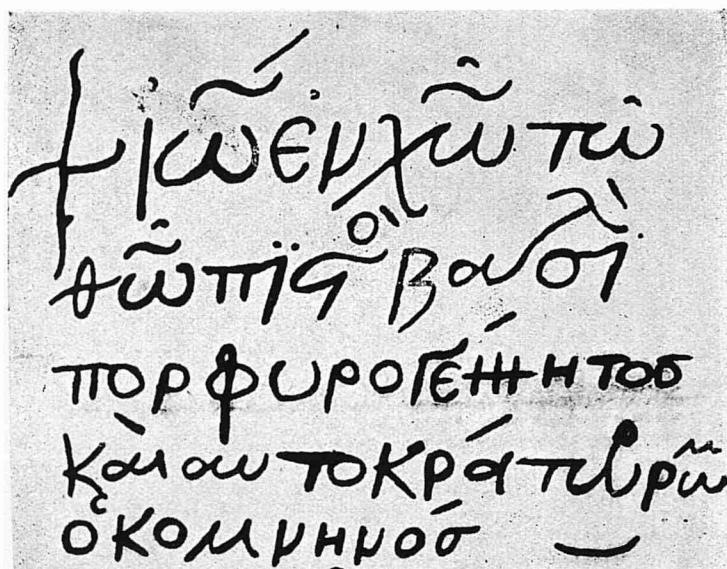 ☩ ἰω̃ ἐν χω̃ τῶ
θω̃ πϊϛὸ βασιλ̀
πορφυρογέννητοσ
καὶ αυτοκράτωρ ρω̃
ὁ κομνηνόσ